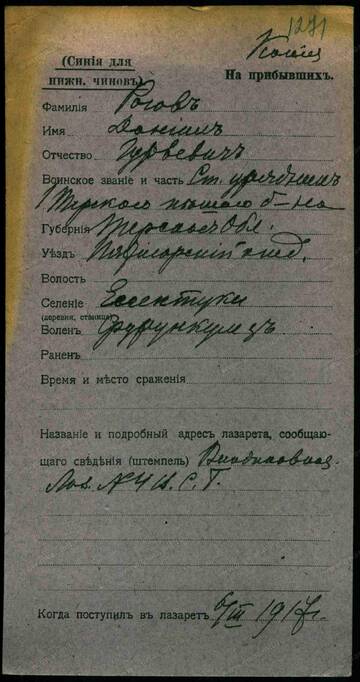 1271
Копія
(Синія для
нижн. чиновъ)
На прибывшихъ.
Фамилія Роговъ
Имя Даніилъ
Отчество Гурьевичъ
Воинское званіе и часть Ст. урядникъ
Терского пѣшого б-на
Губернія Терской Обл.
Уѣздъ Пятигорскій отд.
Волость
Селеніе Ессентуки
(деревня, станица)
Боленъ Фурункулезъ
Раненъ
Время и мѣсто сраженія
Названіе и подробный адресъ лазарета, сообщаю-
щаго свѣдѣнія (штемпель)
Лаз. №4 В. С. Г.
Когда поступилъ въ лазаретъ 6/III 1917 г.